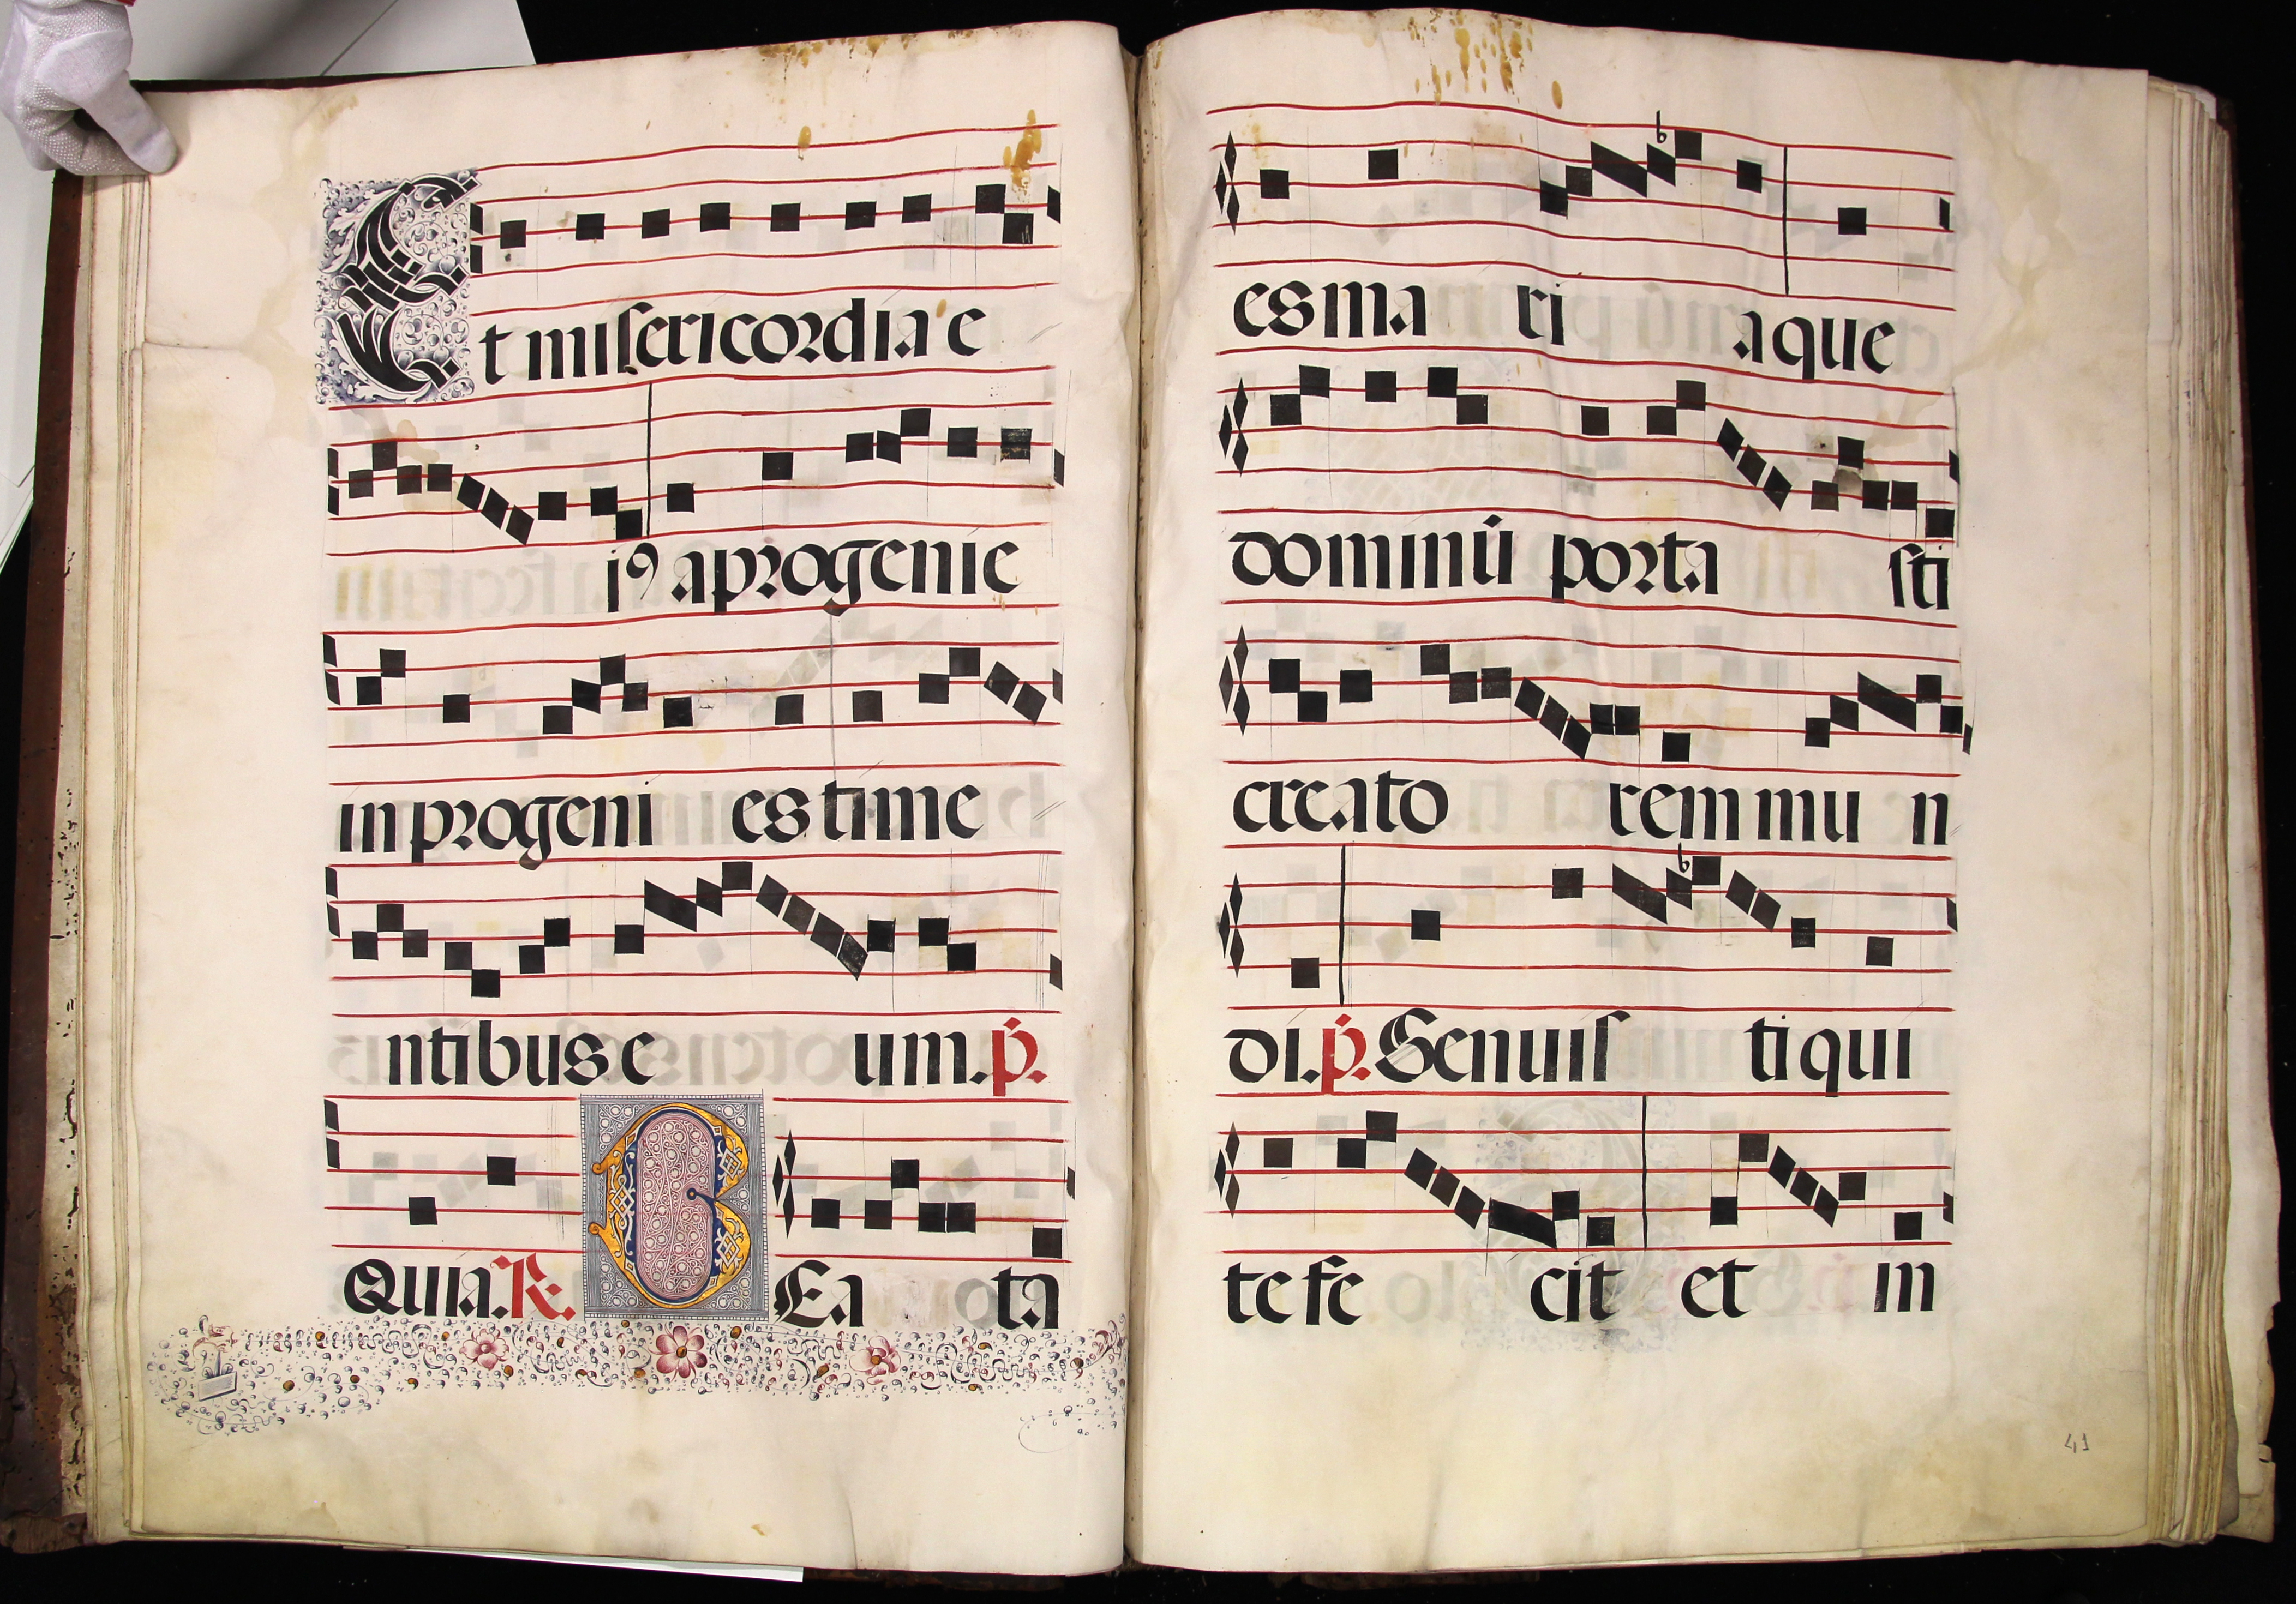 Et misericordia e
j9 a progenie
in progeni es time
ntibus e um. p̄.
Quia. R. BEa ta
es ma ri a que
dominū porta sti
creato rem mu n
di. p̄. Genuis ti qui
te fe cit et in
41